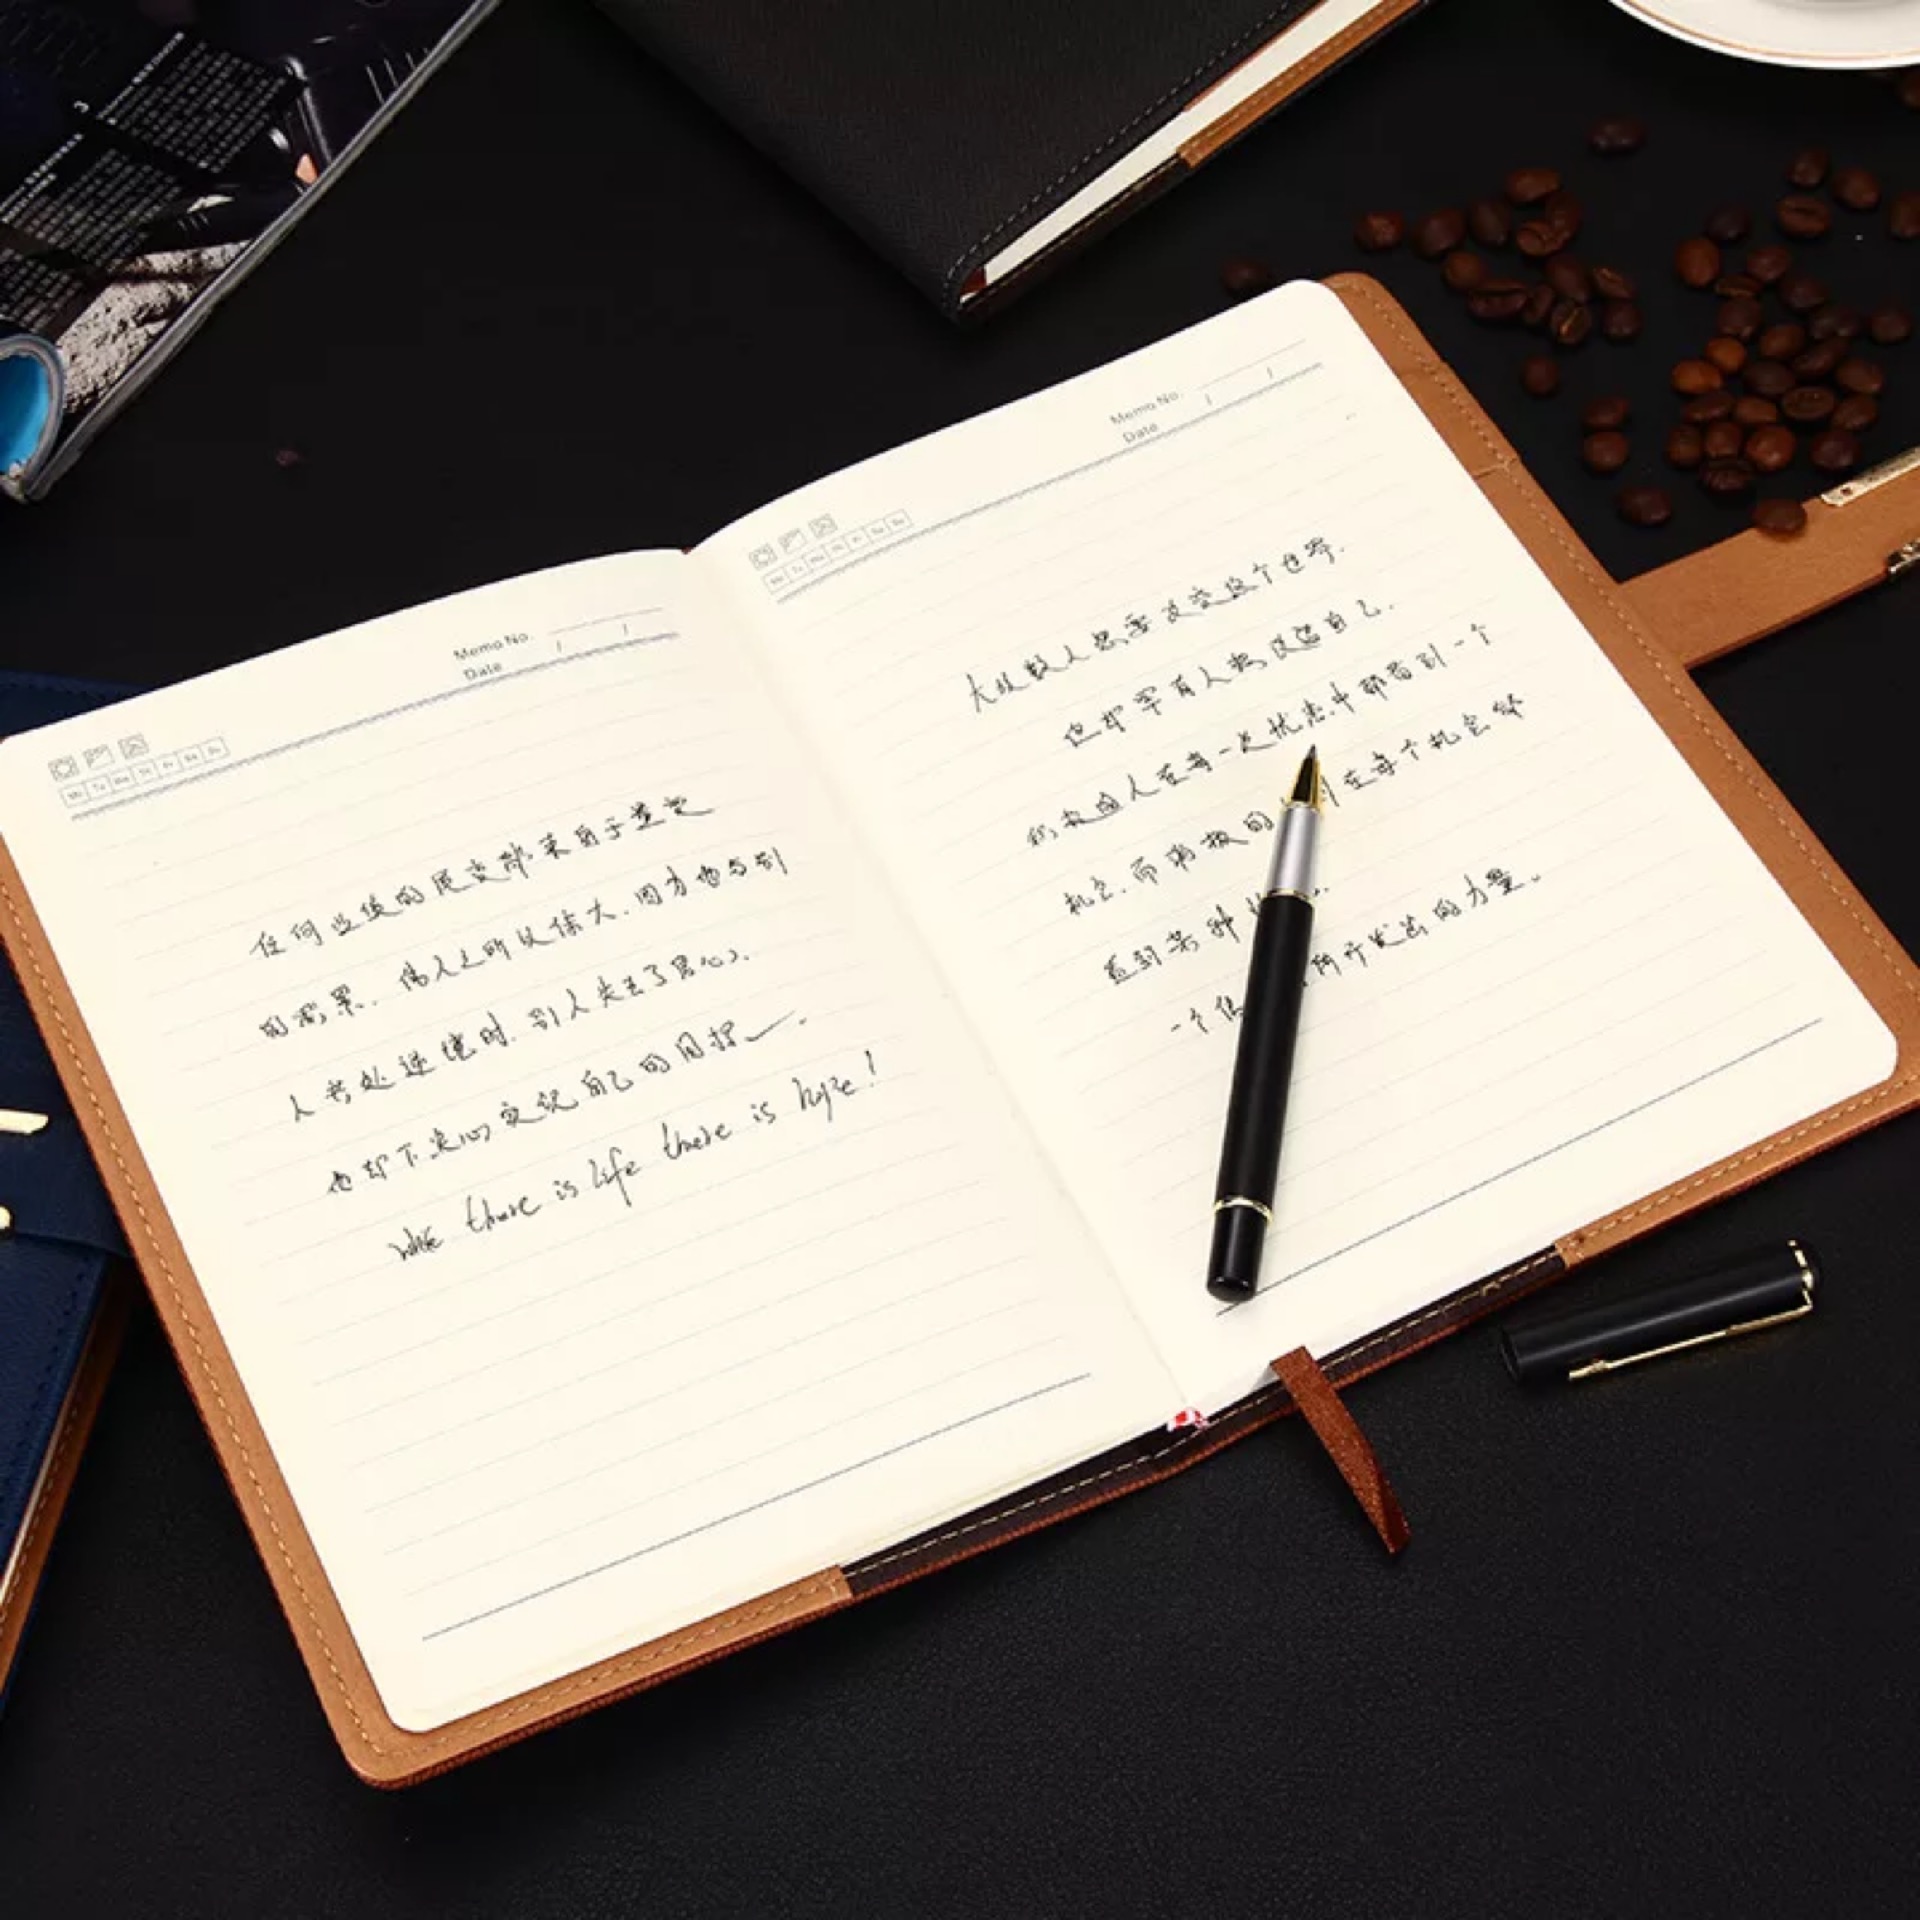 Memo No.
Date / /
Mo Tu We Th Fr Sa Su
任何业绩的质变都来自于量变
的积累.伟人之所以伟大.因为他与别
人共处逆境时.别人失去了信心.
他却下决心实现自己的目标.
there is life there is hope!
Memo No.
Date / /
Mo Tu We Th Fr Sa Su
大多数人想要改变这个世界.
但却罕有人想改造自己.
积极的人在每一次忧患中都看到一个
机会.而消极的 则在每个机会都
看到某种
一个 所开发出的力量。
3